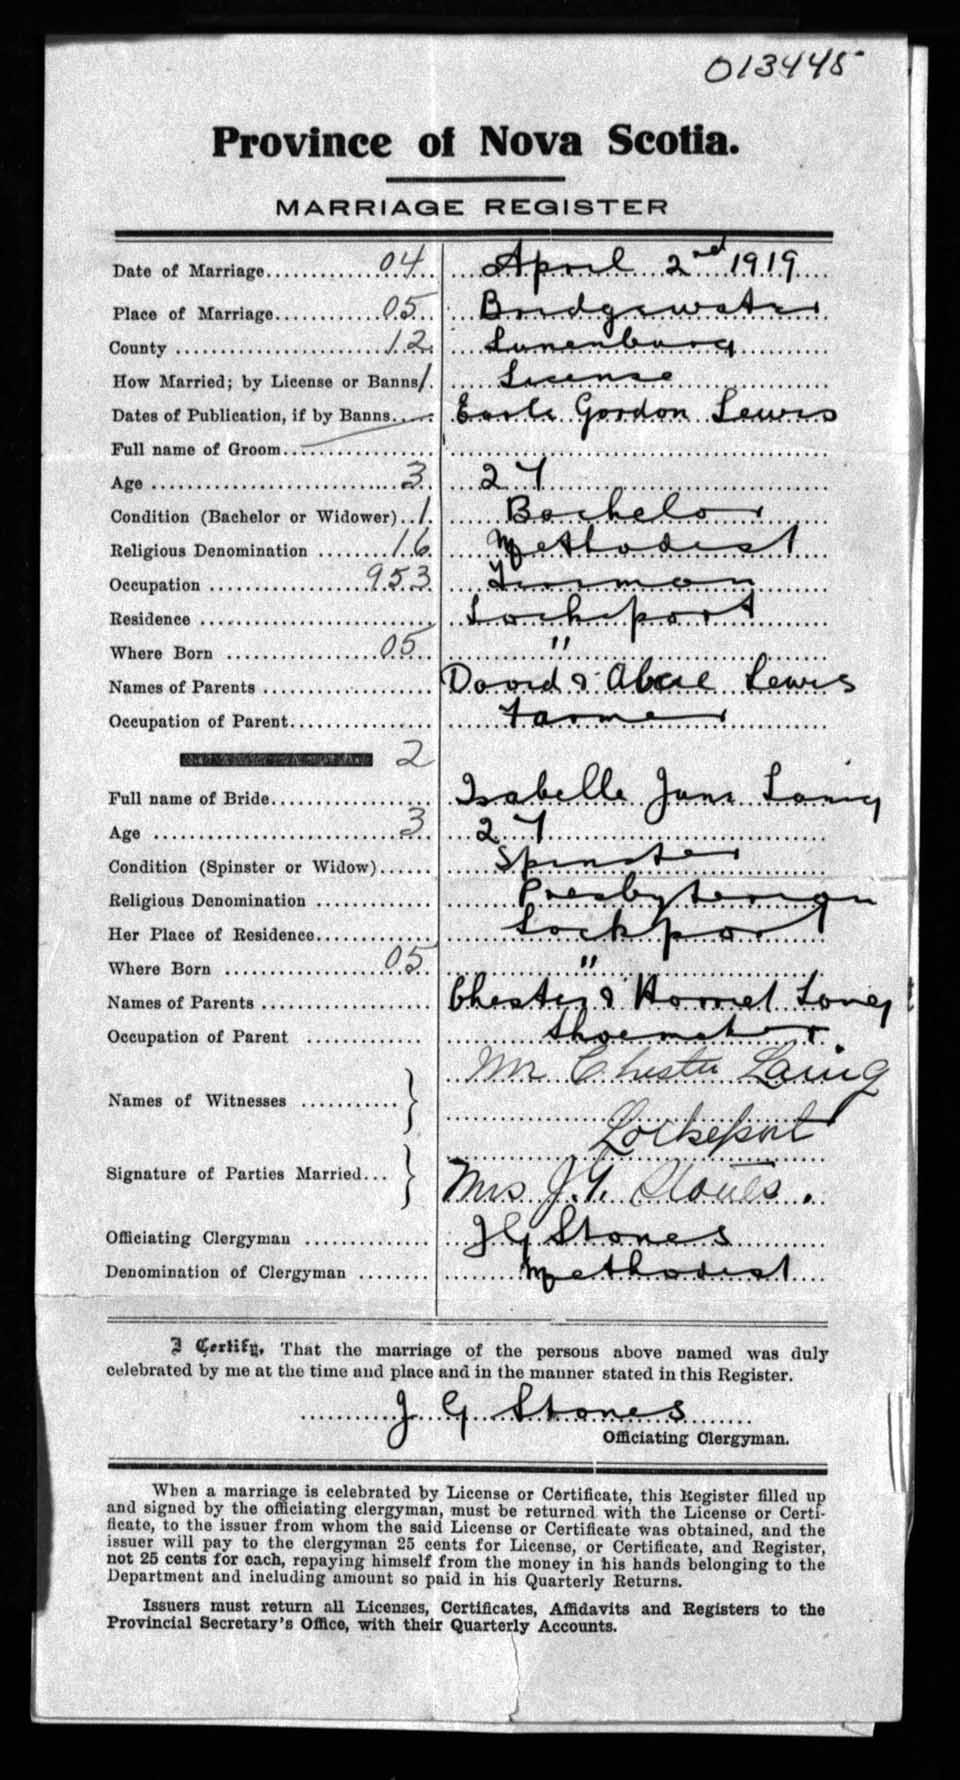 013445
Province of Nova Scotia.
MARRIAGE REGISTER
Date of Marriage 04 April 2nd 1919
Place of Marriage 05 Bridgewater
County 12 Lunenburg
How Married; by License or Banns 1 License
Dates of Publication, if by Banns Earle Gordon Lewis
Full name of Groom
Age 3 27
Condition (Bachelor or Widower) 1 Bachelor
Religious Denomination 16 Methodist
Occupation 953
Residence Lockeport
Where Born 05 "
Names of Parents David & Lewis
Occupation of Parent Farmer
2
Full name of Bride Isabelle Jane Laing
Age 3 27
Condition (Spinster or Widow) Spinster
Religious Denomination Presbyterian
Her Place of Residence Lockport
Where Born 05 "
Names of Parents Chester &
Occupation of Parent Shoemaker
Mr Chester Laing
Names of Witnesses }
Lockeport
Signature of Parties Married }
Mrs J. G. Stones.
Officiating Clergyman J G Stones
Denomination of Clergyman Methodist
I Certify, That the marriage of the persons above named was duly
celebrated by me at the time and place and in the manner stated in this Register.
J G Stones
Officiating Clergyman.
When a marriage is celebrated by License or Certificate, this Register filled up
and signed by the officiating clergyman, must be returned with the License or Certi-
ficate, to the issuer from whom the said License or Certificate was obtained, and the
issuer will pay to the clergyman 25 cents for License, or Certificate, and Register,
not 25 cents for each, repaying himself from the money in his hands belonging to the
Department and including amount so paid in his Quarterly Returns.
Issuers must return all Licenses, Certificates, Affidavits and Registers to the
Provincial Secretary's Office, with their Quarterly Accounts.